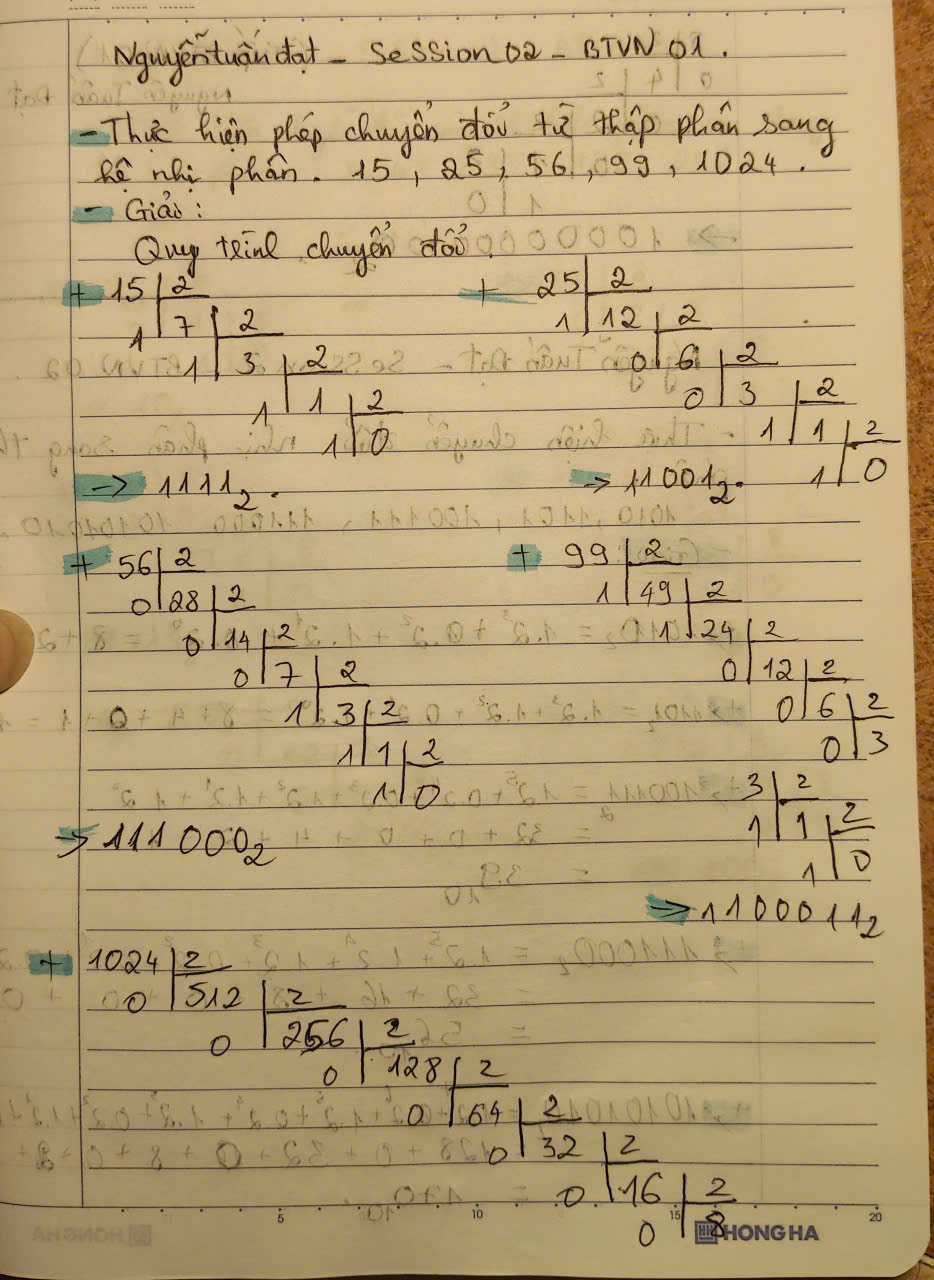 Nguyễn tuấn đạt - Session 02 - BTVN 01.
- Thực hiện phép chuyển đổi từ thập phân sang
hệ nhị phân. 15, 25, 56, 99, 1024.
- Giải:
Quy trình chuyển đổi.
+ 15 2
1 7 2
1 3 2
1 1 2
1 0
→ 1111₂.
+ 25 2
1 12 2
0 6 2
0 3 2
1 1 2
1 0
→ 11001₂.
+ 56 2
0 28 2
0 14 2
0 7 2
1 3 2
1 1 2
1 0
→ 111000₂
+ 99 2
1 49 2
1 24 2
0 12 2
0 6 2
0 3
3 2
1 1 2
1 0
→ 1100011₂
+ 1024 2
0 512 2
0 256 2
0 128 2
0 64 2
0 32 2
0 16 2
0 8
5 10 15 20
HONG HA